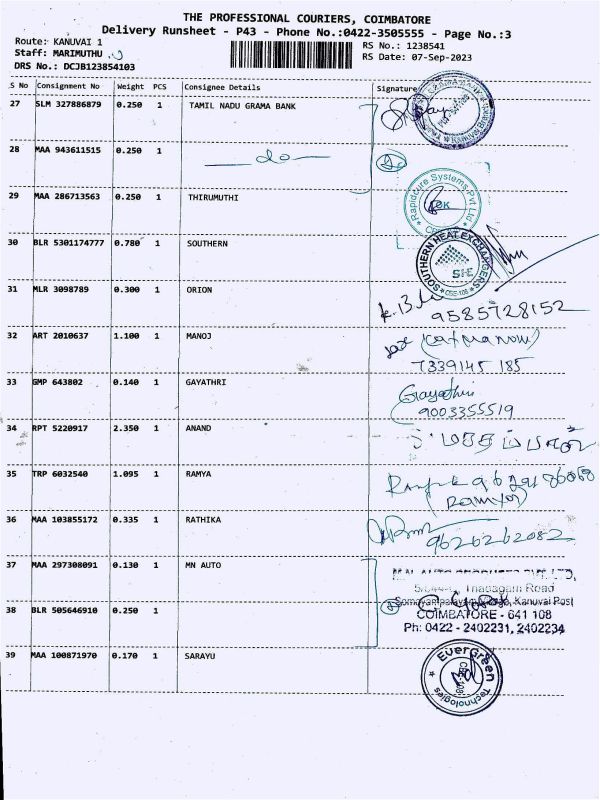 THE PROFESSIONAL COURIERS, COIMBATORE
Delivery Runsheet - P43 - Phone No.:0422-3505555 - Page No.:3
Route: KANUVAI 1
RS No.: 1238541
Staff: MARIMUTHU
RS Date: 07-Sep-2023
DRS No.: DCJB123854103
S No Consignment No Weight PCS Consignee Details Signature
27 SLM 327886879 0.250 1 TAMIL NADU GRAMA BANK
28 MAA 943611515 0.250 1 do
29 MAA 286713563 0.250 1 THIRUMUTHI
Rapidcure Systems Pvt Ltd
30 BLR 5301174777 0.780 1 SOUTHERN
SOUTHERN HEAT EXCHANGERS
SHE
31 MLR 3098789 0.300 1 ORION
9585728152
32 ART 2010637 1.100 1 MANOJ
7339145 185
33 GMP 643802 0.140 1 GAYATHRI Gayathri
9003355519
34 RPT 5220917 2.350 1 ANAND
35 TRP 6032540 1.095 1 RAMYA
(Ramya)
36 MAA 103855172 0.335 1 RATHIKA
9626262082
37 MAA 297308091 0.130 1 MN AUTO
Thadagam Road
Kanuvai Post
38 BLR 505646910 0.250 1
COIMBATORE - 641 108
Ph: 0422 - 2402231, 2402234
39 MAA 100871970 0.170 1 SARAYU
EverGreen Technologies